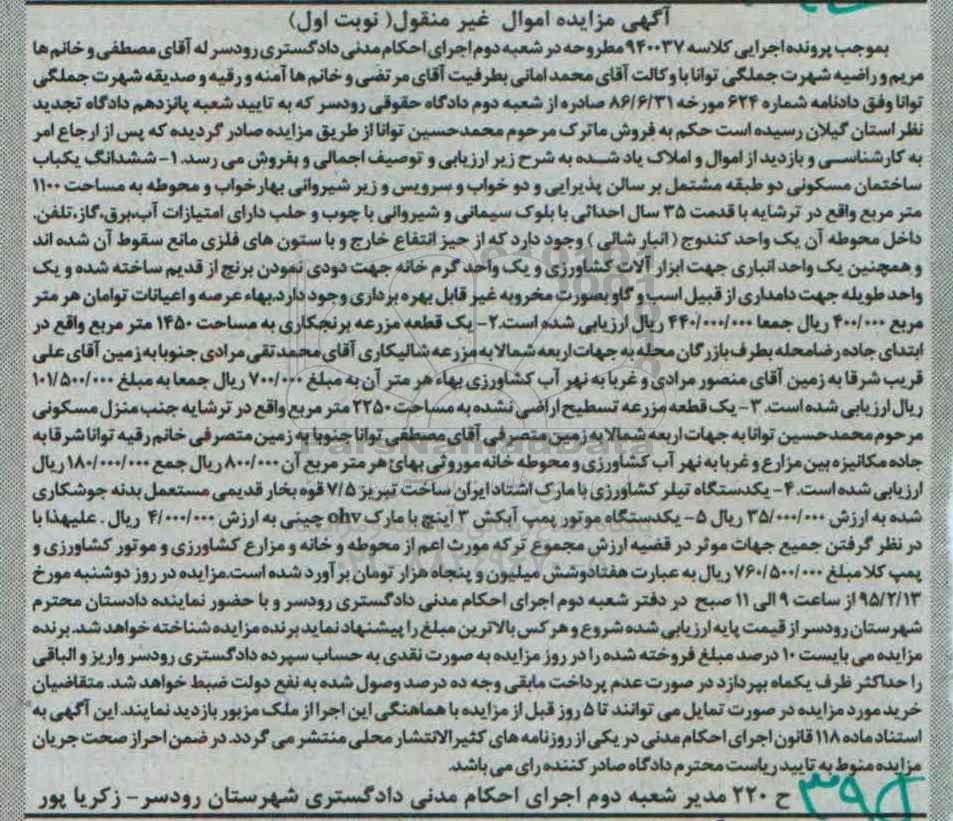 آگهی مزایده اموال غیر منقول( نوبت اول)
بموجب پرونده اجرایی کلاسه ۹۴۰۰۳۷ مطروحه در شعبه دوم اجرای احکام مدنی دادگستری رودسر له آقای مصطفی و خانم ها
مریم و راضیه شهرت جملگی توانا با وکالت آقای محمد امانی بطرفیت آقای مرتضی و خانم ها آمنه و رقیه و صدیقه شهرت جملگی
توانا وفق دادنامه شماره ۶۲۴ مورخه ۸۶/۶/۳۱ صادره از شعبه دوم دادگاه حقوقی رودسر که به تایید شعبه پانزدهم دادگاه تجدید
نظر استان گیلان رسیده است حکم به فروش ماترک مرحوم محمدحسین توانا از طریق مزایده صادر گردیده که پس از ارجاع امر
به کارشناسی و بازدید از اموال و املاک یاد شده به شرح زیر ارزیابی و توصیف اجمالی و بفروش می رسد. ۱- ششدانگ یکباب
ساختمان مسکونی دو طبقه مشتمل بر سالن پذیرایی و دو خواب و سرویس و زیر شیروانی بهارخواب و محوطه به مساحت ۱۱۰۰
متر مربع واقع در ترشایه با قدمت ۳۵ سال احداثی با بلوک سیمانی و شیروانی با چوب و حلب دارای امتیازات آب،برق،گاز،تلفن.
داخل محوطه آن یک واحد کندوج ( انبار شالی ) وجود دارد که از حیز انتفاع خارج و با ستون های فلزی مانع سقوط آن شده اند
و همچنین یک واحد انباری جهت ابزار آلات کشاورزی و یک واحد گرم خانه جهت دودی نمودن برنج از قدیم ساخته شده و یک
واحد طویله جهت دامداری از قبیل اسب و گاو بصورت مخروبه غیر قابل بهره برداری وجود دارد.بهاء عرصه و اعیانات توامان هر متر
مربع ۴۰۰/۰۰۰ ریال جمعا ۴۴۰/۰۰۰/۰۰۰ ریال ارزیابی شده است.۲- یک قطعه مزرعه برنجکاری به مساحت ۱۴۵۰ متر مربع واقع در
ابتدای جاده رضامحله بطرف بازرگان محله به جهات اربعه شمالا به مزرعه شالیکاری آقای محمدتقی مرادی جنوبا به زمین آقای علی
قریب شرقا به زمین آقای منصور مرادی و غربا به نهر آب کشاورزی بهاء هر متر آن به مبلغ ۷۰۰/۰۰۰ ریال جمعا به مبلغ ۱۰۱/۵۰۰/۰۰۰
ریال ارزیابی شده است. ۳- یک قطعه مزرعه تسطیح اراضی نشده به مساحت ۲۲۵۰ متر مربع واقع در ترشایه جنب منزل مسکونی
مرحوم محمدحسین توانا به جهات اربعه شمالا به زمین متصرفی آقای مصطفی توانا جنوبا به زمین متصرفی خانم رقیه توانا شرقا به
جاده مکانیزه بین مزارع و غربا به نهر آب کشاورزی و محوطه خانه موروثی بهائ هر متر مربع آن ۸۰۰/۰۰۰ ریال جمع ۱۸۰/۰۰۰/۰۰۰ ریال
ارزیابی شده است. ۴- یکدستگاه تیلر کشاورزی با مارک اشتاد ایران ساخت تبریز ۷/۵ قوه بخار قدیمی مستعمل بدنه جوشکاری
شده به ارزش ۳۵/۰۰۰/۰۰۰ ریال ۵- یکدستگاه موتور پمپ آبکش ۳ اینچ با مارک ohv چینی به ارزش ۴/۰۰۰/۰۰۰ ریال . علیهذا با
در نظر گرفتن جمیع جهات موثر در قضیه ارزش مجموع ترکه مورث اعم از محوطه و خانه و مزارع کشاورزی و موتور کشاورزی و
پمپ کلا مبلغ ۷۶۰/۵۰۰/۰۰۰ ریال به عبارت هفتادوشش میلیون و پنجاه هزار تومان برآورد شده است.مزایده در روز دوشنبه مورخ
۹۵/۲/۱۳ از ساعت ۹ الی ۱۱ صبح در دفتر شعبه دوم اجرای احکام مدنی دادگستری رودسر و با حضور نماینده دادستان محترم
شهرستان رودسر از قیمت پایه ارزیابی شده شروع و هر کس بالاترین مبلغ را پیشنهاد نماید برنده مزایده شناخته خواهد شد. برنده
مزایده می بایست ۱۰ درصد مبلغ فروخته شده را در روز مزایده به صورت نقدی به حساب سپرده دادگستری رودسر واریز و الباقی
را حداکثر ظرف یکماه بپردازد در صورت عدم پرداخت مابقی وجه ده درصد وصول شده به نفع دولت ضبط خواهد شد. متقاضیان
خرید مورد مزایده در صورت تمایل می توانند تا ۵ روز قبل از مزایده با هماهنگی این اجرا از ملک مزبور بازدید نمایند. این آگهی به
استناد ماده ۱۱۸ قانون اجرای احکام مدنی در یکی از روزنامه های کثیرالانتشار محلی منتشر می گردد. در ضمن احراز صحت جریان
مزایده منوط به تایید ریاست محترم دادگاه صادر کننده رای می باشد.
ح ۲۲۰ مدیر شعبه دوم اجرای احکام مدنی دادگستری شهرستان رودسر- زکریا پور
ParsNamadData